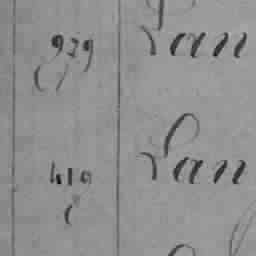 929 Lan
410 Lan